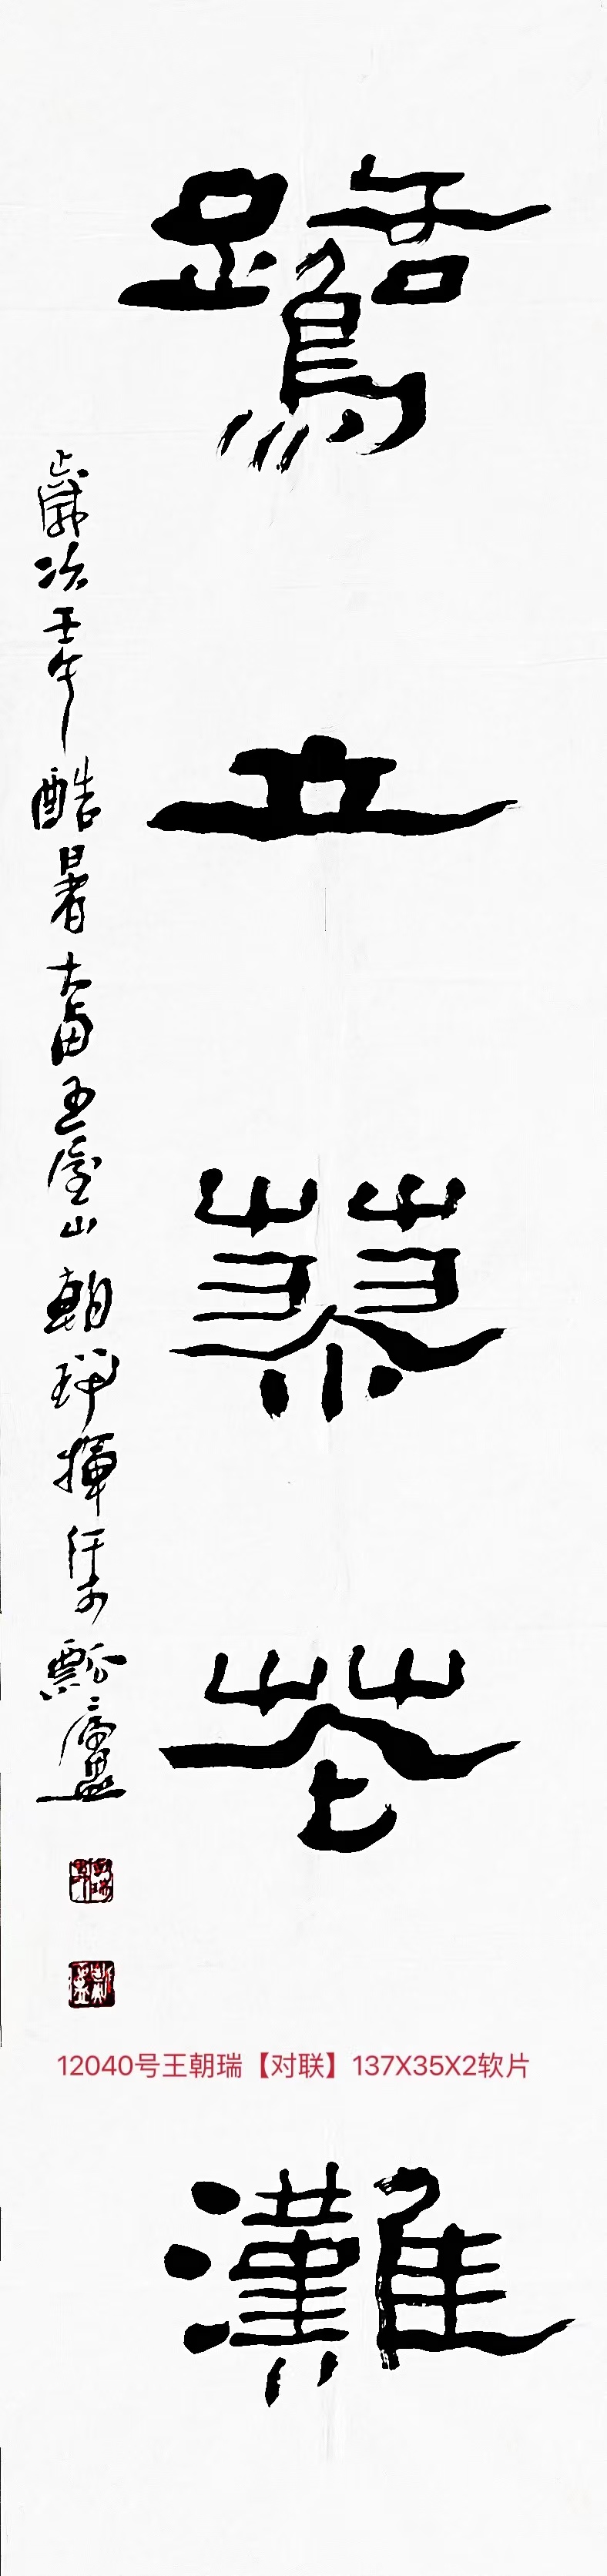 鷺立蓼花灘
歲次壬午酷暑大鹵王屋山朝瑞揮汗瓢廬
12040号王朝瑞【对联】137X35X2软片